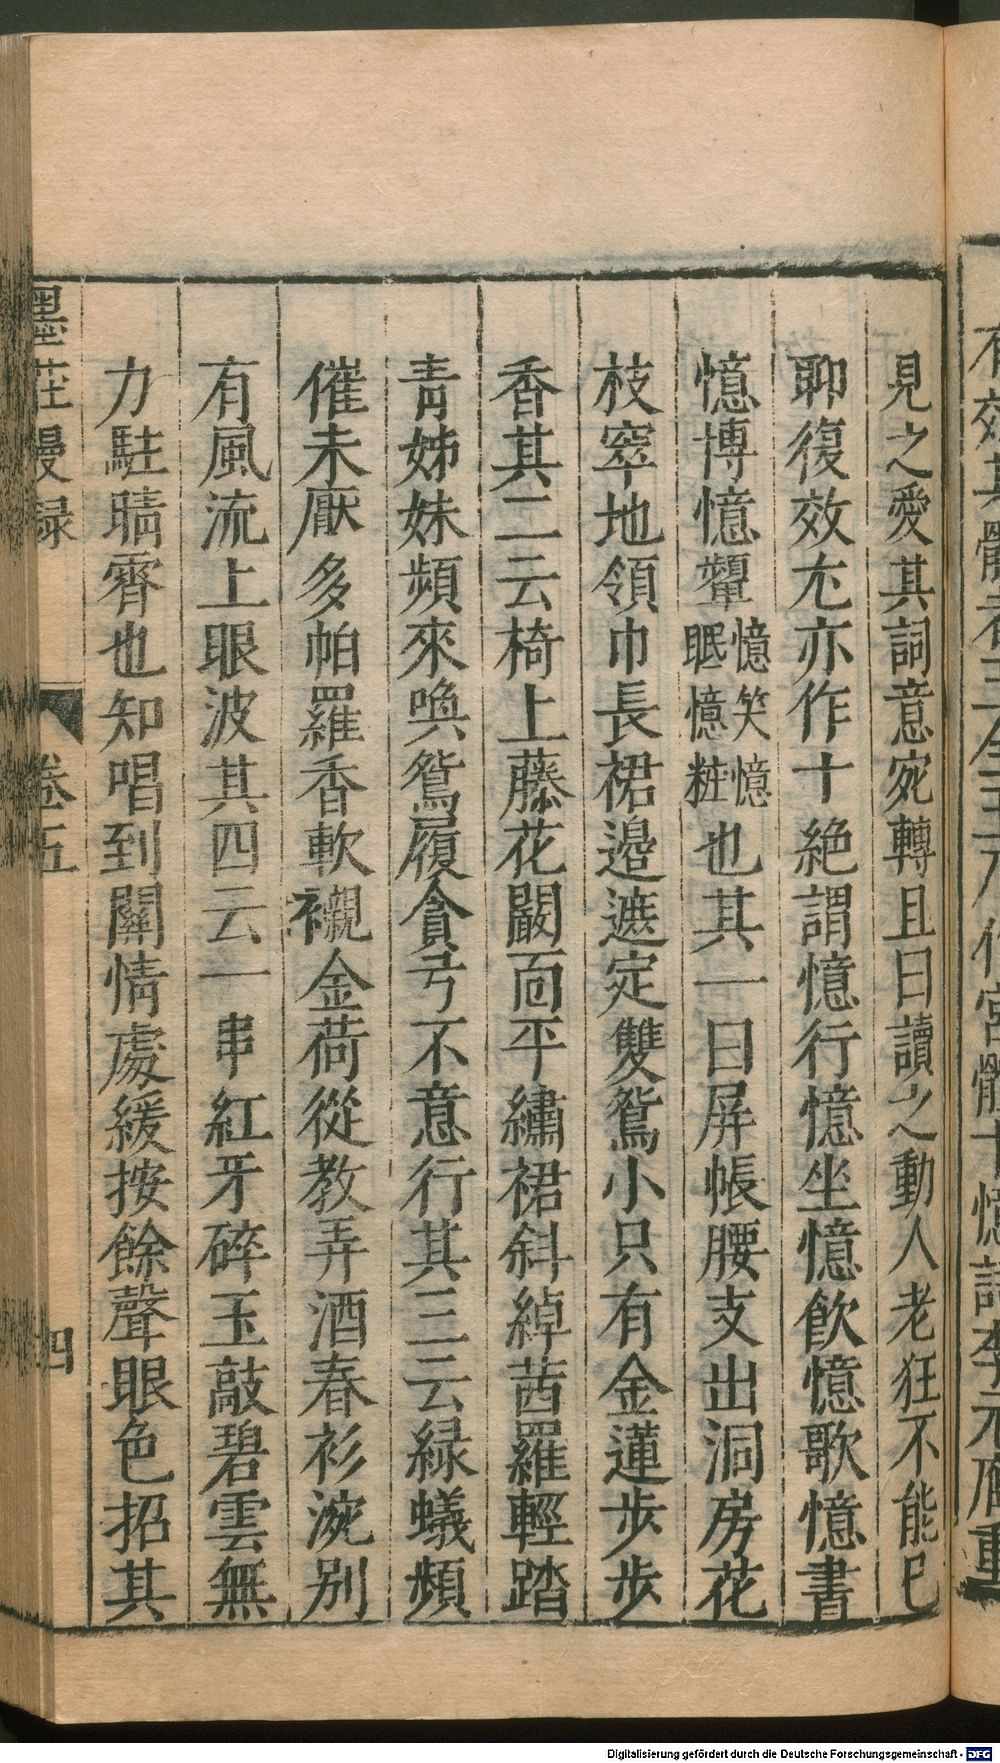 見之愛其詞意宛轉且曰讀之動人老狂不能已
聊復效尤亦作十絶謂憶行憶坐憶飲憶歌憶書
憶博憶顰憶笑憶眠憶粧也其一曰屏帳腰支出洞房花
枝窣地領巾長裙邉遮定雙鴛小只有金蓮步步
香其二云椅上藤花嚴面平繡裙斜綽茜羅輕踏
青姊妹頻來喚鴛履貪弓不意行其三云緑蟻頻
催未厭多帕羅香軟襯金荷從教弄酒春衫涴别
有風流上眼波其四云一串紅牙碎玉敲碧雲無
力駐晴霄也知唱到關情處緩按餘聲眼色招其
墨莊漫録 卷五 四
Digitalisierung gefördert durch die Deutsche Forschungsgemeinschaft - DFG